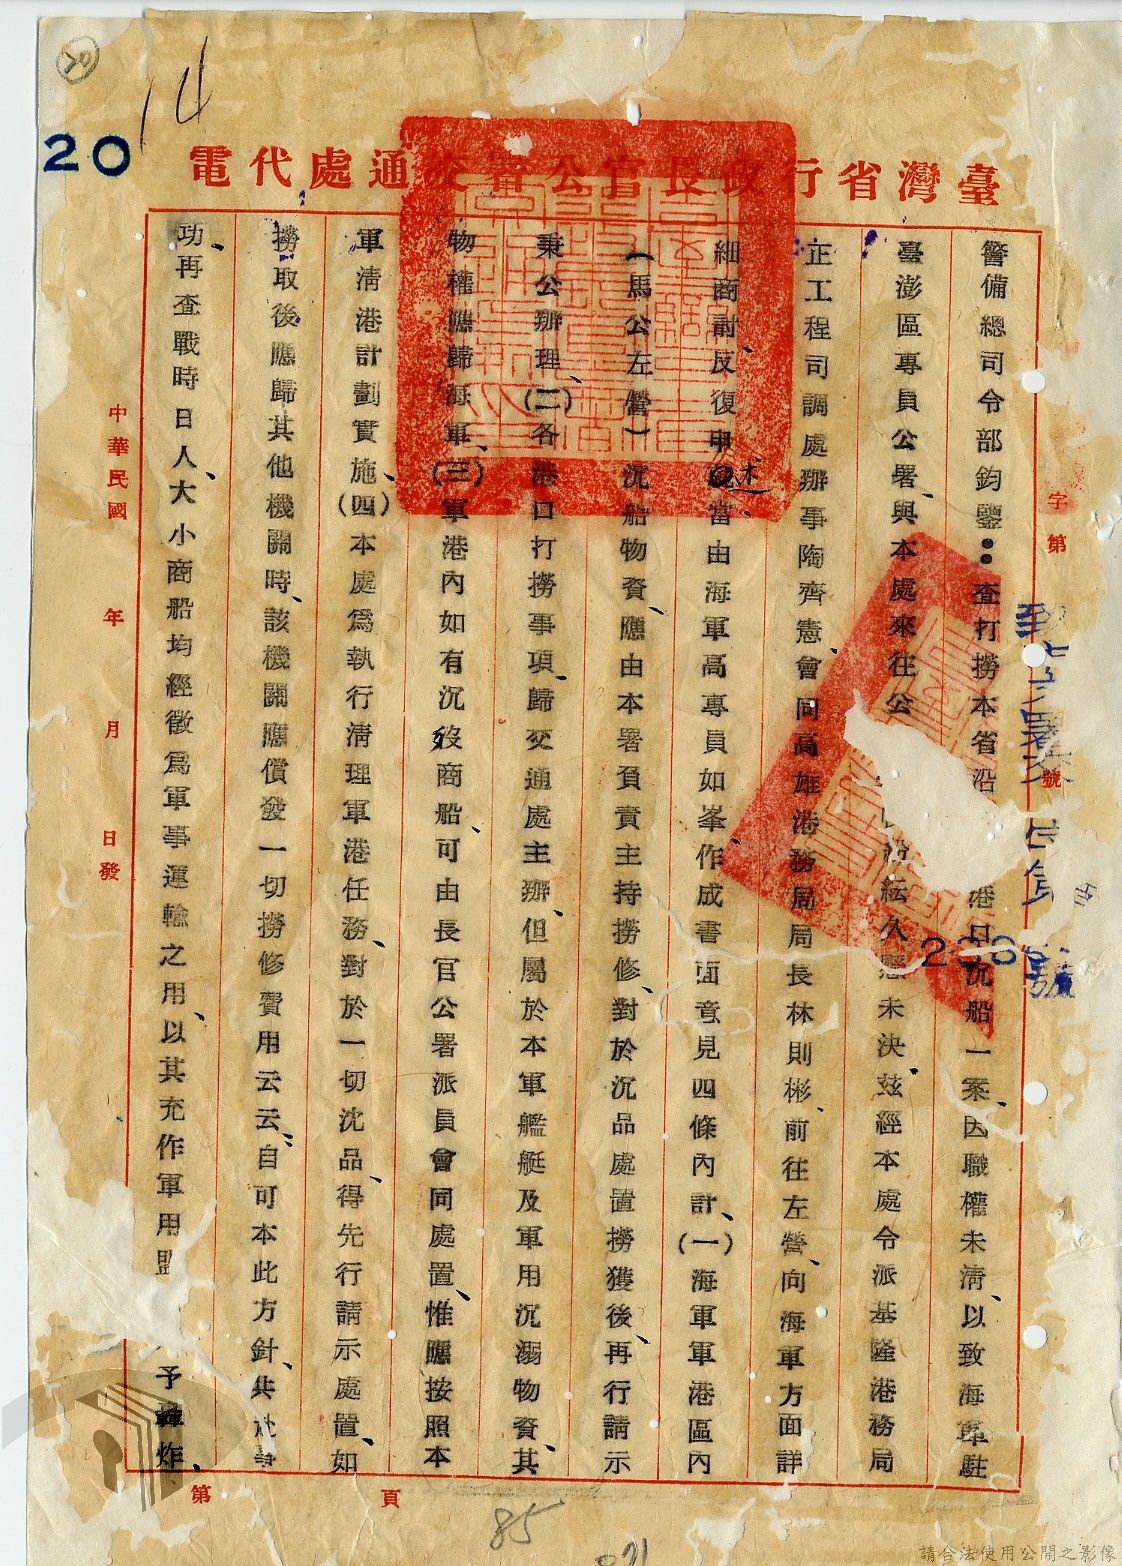 臺灣省行政長官公署交通處代電
字第
號
警備總司令部鈞鑒：查打撈本省沿
港口沉船一案、因職權未清、以致海軍駐
臺澎區專員公署、與本處來往公
紛紜久懸未決、茲經本處令派基隆港務局
正工程司調處辦事陶齊憲、會同高雄港務局局長林則彬、前往左營、向海軍方面詳
細商討、反復申述、當由海軍高專員如峯、作成書面意見四條內計、(一)海軍軍港區內
(馬公左營)沉船物資、應由本署負責主持撈修、對於沉品處置撈獲後、再行請示
秉公辦理、(二)各港口打撈事項、歸交通處主辦、但屬於本軍艦艇及軍用沉溺物資、其
物權應歸海軍、(三)軍港內如有沉沒商船、可由長官公署派員會同處置、惟應按照本
軍清港計劃實施、(四)本處為執行清理軍港任務、對於一切沈品、得先行請示處置、如
撈取後應歸其他機關時、該機關應償發一切撈修費用云云、自可本此方針、共赴事
功、再查戰時日人、大小商船均經徵為軍事運輸之用、以其充作軍用
予轟炸、
中華民國　年　月　日發
第　頁
20
20
14
85
請合法使用公開之影像